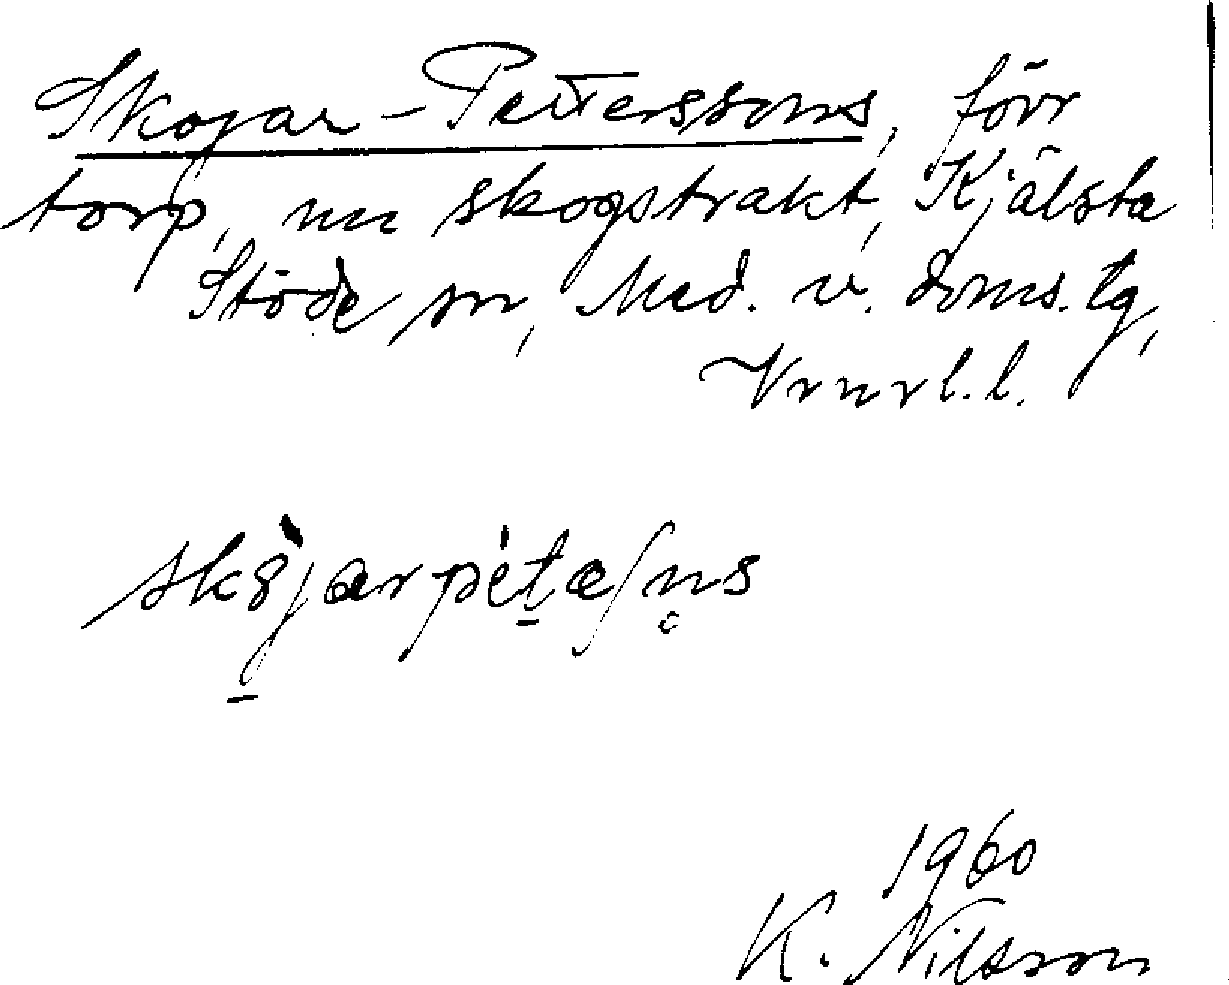 Skojar-Petterssons, förr
torp, nu skogstrakt, Kjälsta
Stöde sn, Med. v. doms. tg,
Vrnrl. l.
skòjarpétaʃn̥s
1960
K. Nilsson